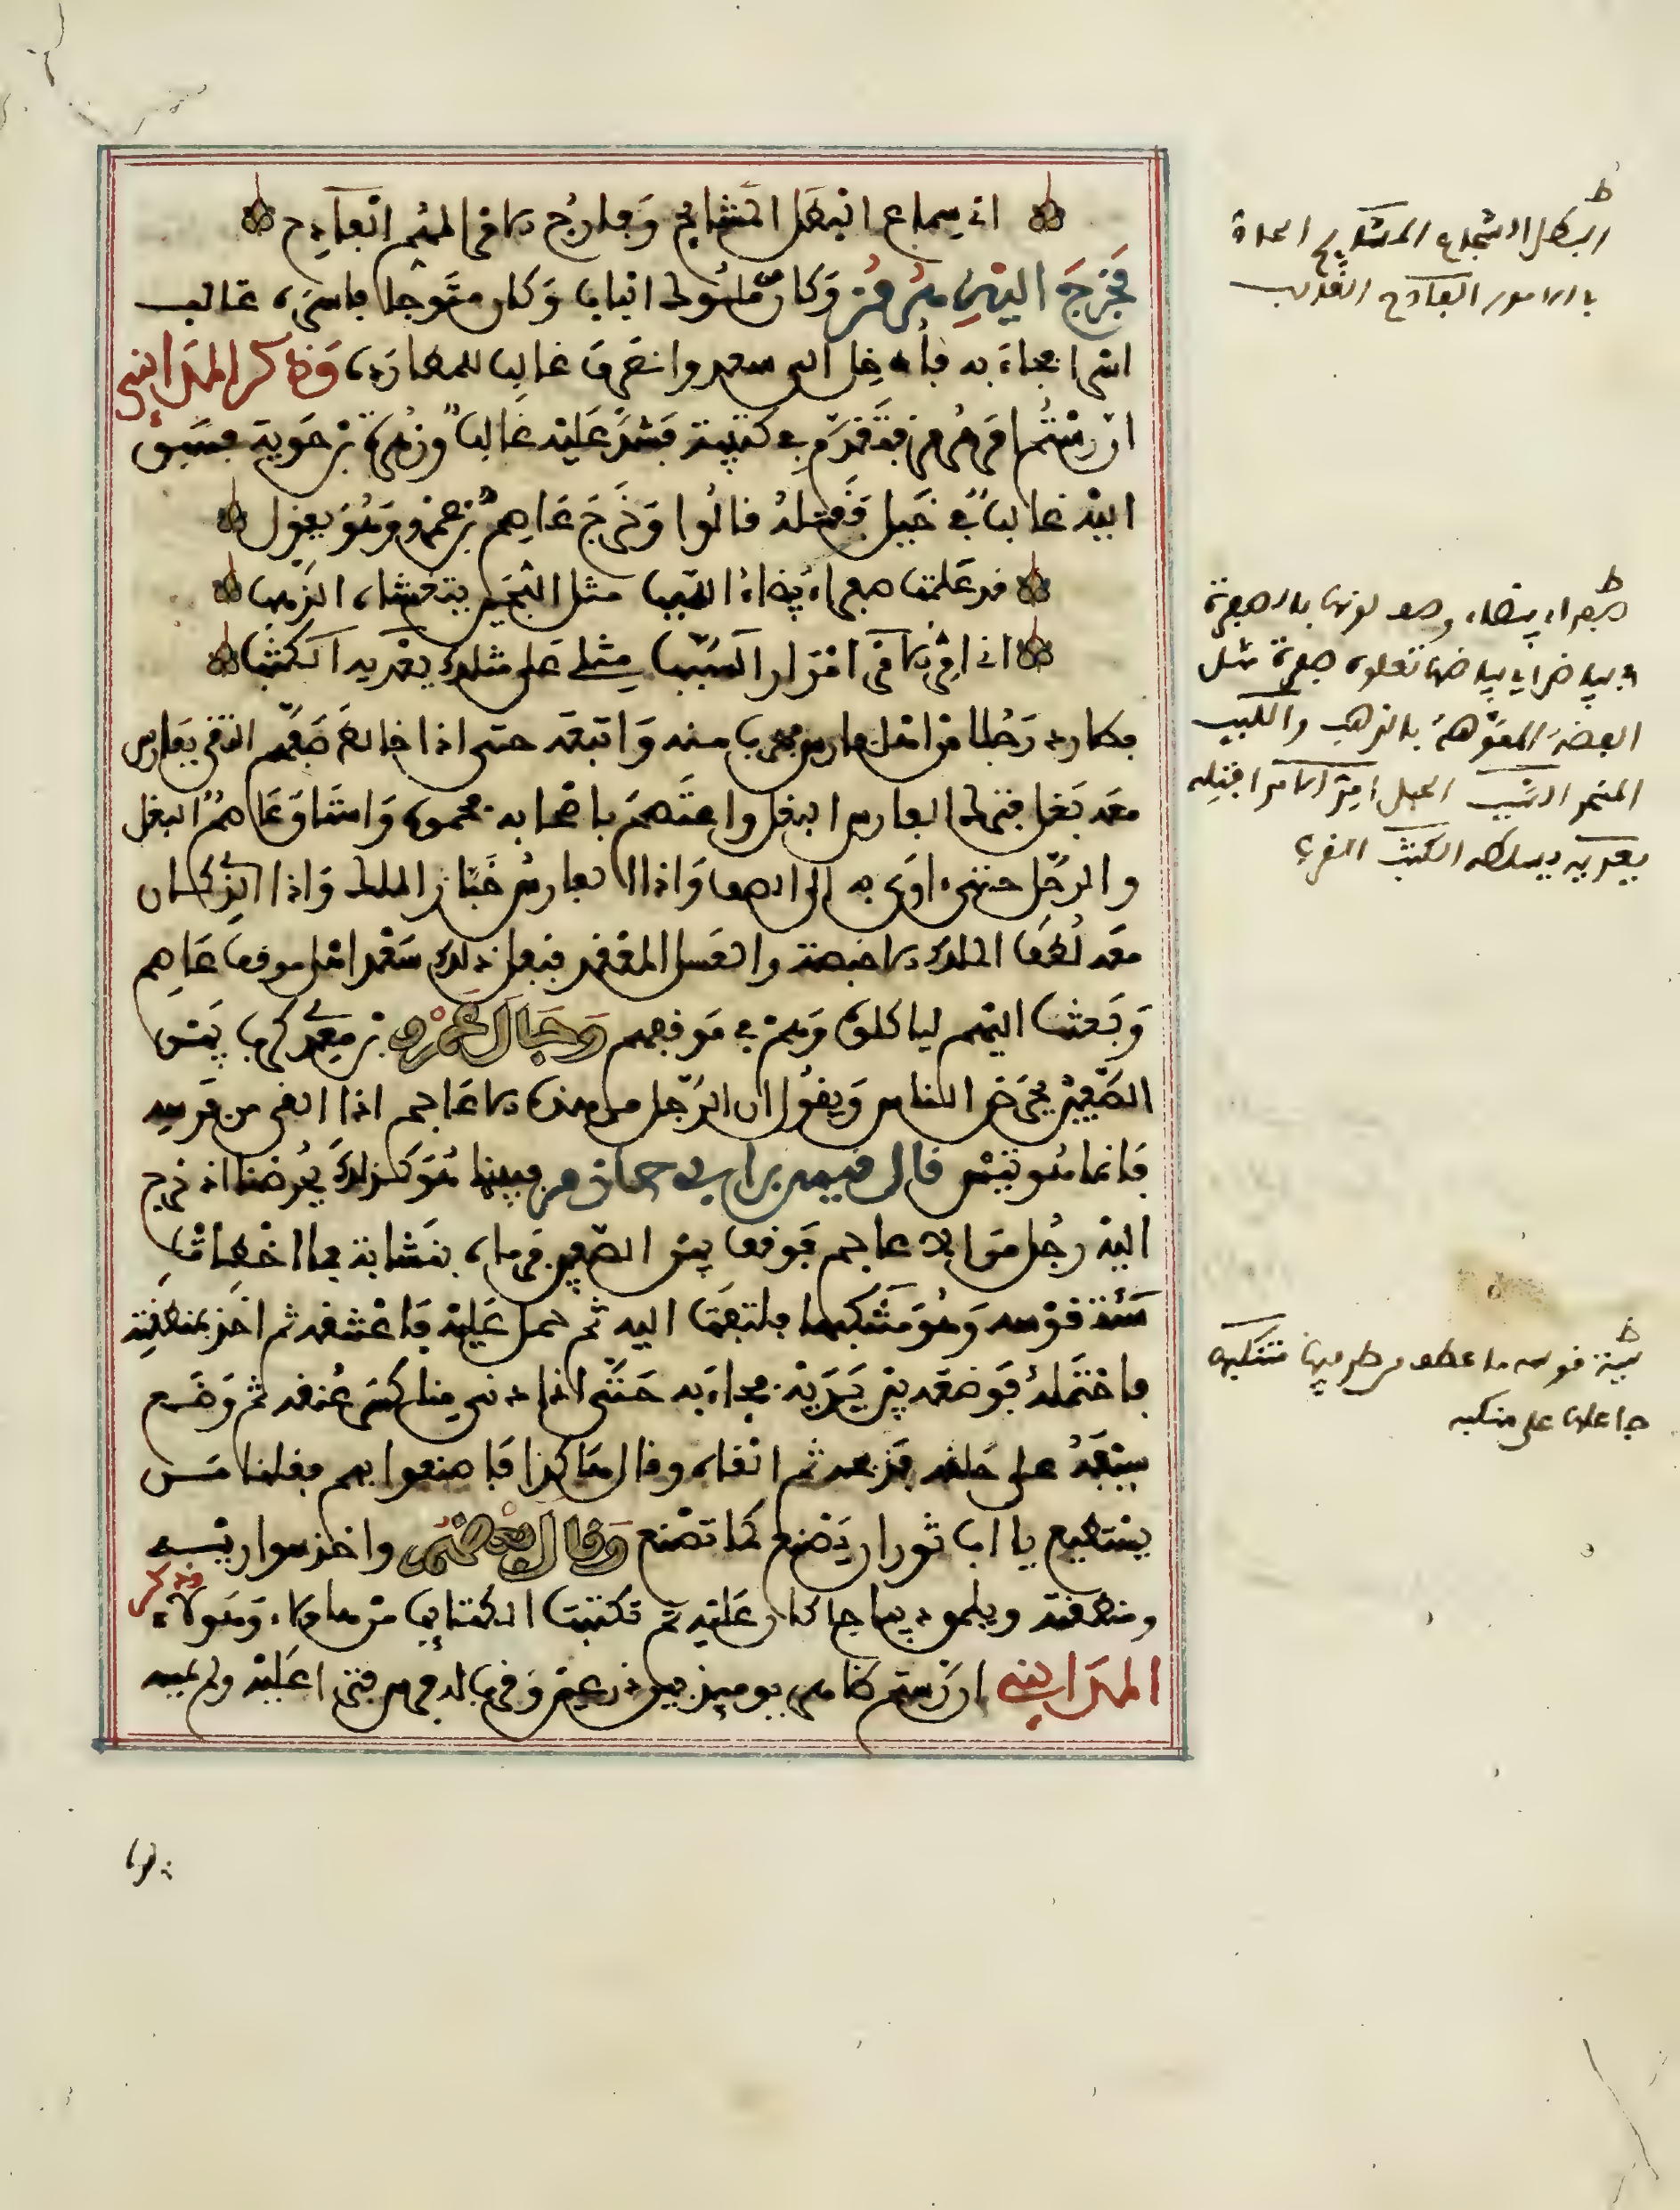 اني سمام البطل المشايح وفارج الامر المهم الفادح
فخرج اليه هرمز وكان من ملوك الباب وكان متوجا فاسره غالب
اسرا فجاء به فادخل الى سعد وانصرف غالب للمطاردة وذكر المدايني
ان رستم امر هرمز فتقدم في كتيبة فشد عليه غالب وزهرة بن حوية فسبق
اليه غالب في خيل فقتله قالوا وخرج عاصم بن عمرو وهو يقول
قد علمت صفراء بيضاء اللبب مثل اللجين يتغشاه الذهب
اني امرؤ لا من امرار السبب مثلي على مثلك يغريه الكثب
فطارد رجلا من اهل فارس فهرب منه واتبعه حتى اذا خالط صفهم التقى بفارس
معه بغل فترك الفارس البغل واعتصم باصحابه فحموه واستاق عاصم البغل
والرجل حتى اوى به الى الصف واذا الفارس خباز الملك واذا الذي كان
معه لطف الملك الاخبصة والعسل المعقد فنفل ذلك سعد اهل موقف عاصم
وبعث اليهم لياكلوه وهم في موقفهم وجال عمرو بن معدي كرب بين
الصفين يحرض الناس ويقول ان الرجل من هذه الاعاجم اذا القى من قوسه
فانما هو تيس قال قيس بن ابي حازم فبينا هو كذلك يحرضنا اذ خرج
اليه رجل من الاعاجم فوقف بين الصفين فرماه بنشابة فما اخطات
سئة قوسه وهو متنكبها فالتفت اليه ثم حمل عليه فاعتنقه ثم اخذ بمنطقته
فاحتمله فوضعه بين يديه فجاء به حتى اذا دنى منا كسر عنقه ثم وضع
سيفه على حلقه فذبحه ثم القاه وقال هاكذا فاصنعوا بهم فقلنا من
يستطيع يا ابا ثور ان يصنع كما تصنع وقال بعضهم واخذ سواريه
ومنطقته ويلمق ديباج كان عليه ثم تكتبت الكتايب من هاولاء وهولاء وذكر
المدايني ان رستم كان يوميذ بين درعين وقرب له فرس فنزا عليه ولم يمسه
البطل الشجاع المشايح الجاد
في الامور الفادح الثقيل
صفراء بيضاء وصف لونها بالصفرة
في بياض اي بياضها تعلوه صفرة مثل
الفضة المموهة بالذهب واللبب
المنحر السبب الحبل امر الامر افتله
يغريه يسلطه الكثب القرب
سية قوسه ما عطف من طرفيها متنكبها
جاعلها على منكبه